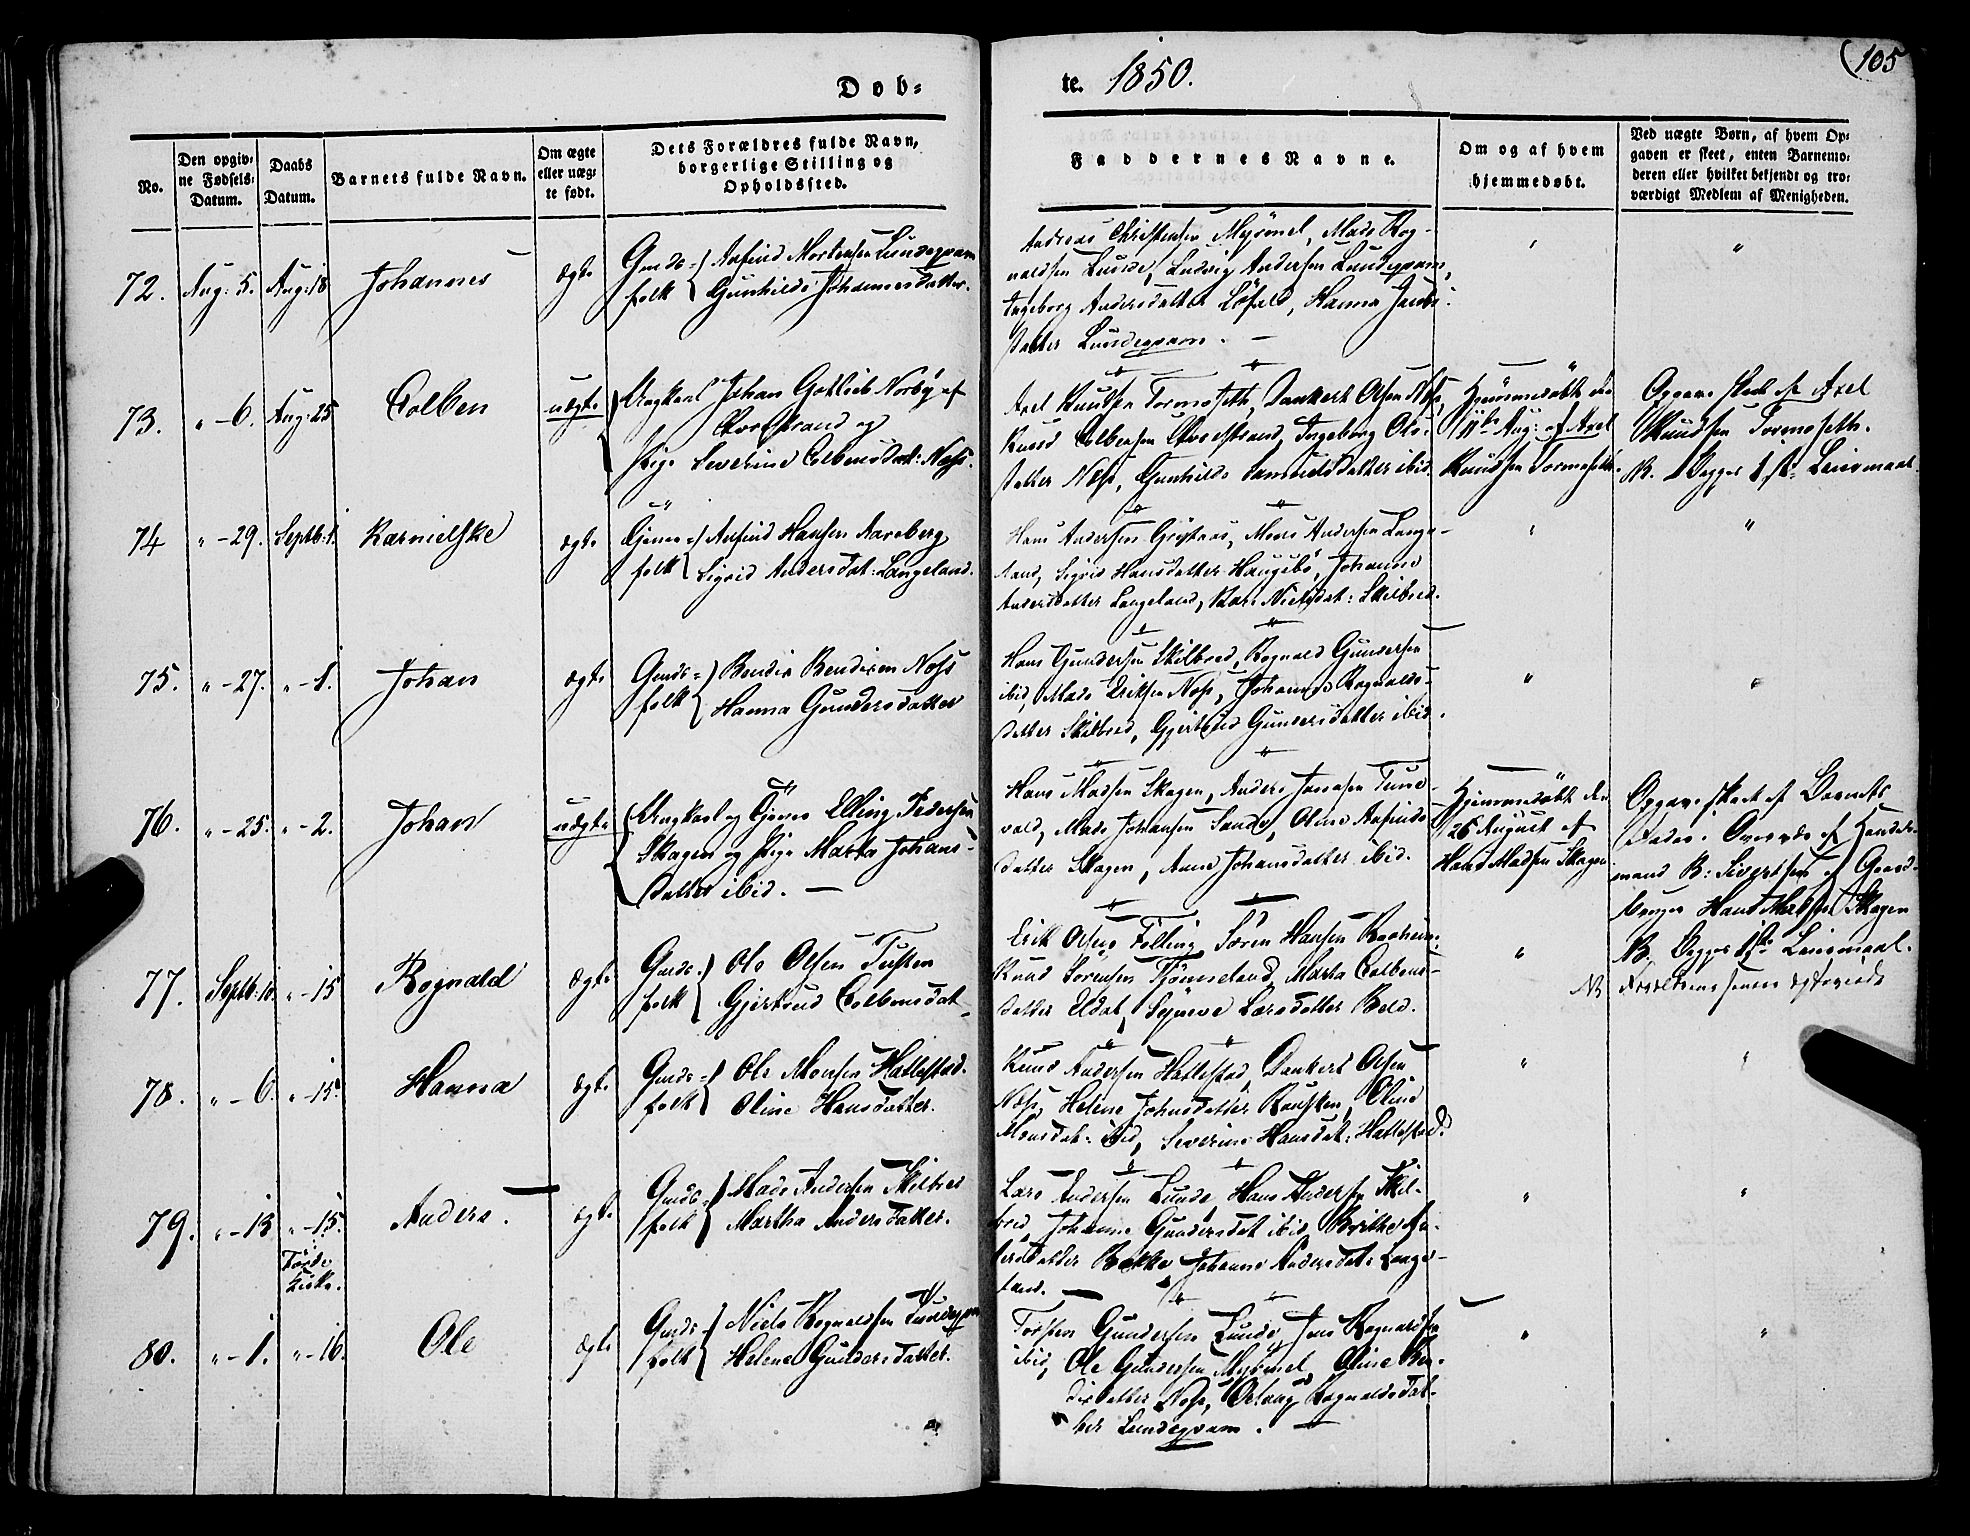 Døb=
te. 1850.
(105
No.
Den opgiv=
ne Fødsels=
Datum.
Daabs
Datum.
Barnets fulde Navn.
Om ægte
eller uæg=
te født.
Dets Forældres fulde Navn,
borgerlige Stilling og
Opholdssted.
Faddernes Navne.
Om og af hvem
hjemmedøbt.
Ved uægte Børn, af hvem Op=
gaven er skeet, enten Barnemo=
deren eller hvilket bekjendt og tro=
værdigt Medlem af Menigheden.
72. Aug: 5. Aug: 18 Johannes ægte
Gmds= Anfind Mortensen Lundeqvam
folk Gunhilde Johannesdatter.
Andreas Christensen Myrmel, Mads Rog-
naldsen Lunde, Ludvig Andersen Lundeqvam,
Ingeborg Andersdatter Løfald, Hanna Jens-
datter Lundeqvam.
73. " - 6. Aug: 25 Colben uægte
Ungkarl Johan Gotlieb Norby af
og
Pige Severine Colbensdat: Næss.
Axel Knudsen Tormoseth, Dankert Olsen Næss,
Knud Colbensen Ingeborg Ols-
datter Næss, Gunhilde Samuelsdatter ibid.
Hjemmedøbt den
11te Aug: af Axel
Knudsen Tormoseth.
Opgave skede af Axel
Knudsen Tormoseth.
B. Begges 1ste Leiermaal.
74 " - 29. Septb: 1. Karnielske ægte
Gjmd= Anfind Hansen Aareberg
folk Sigrid Andersdat: Langeland.
Hans Andersen Mons Andersen Lange-
land, Sigrid Hansdatter Haugebø, Johanne
Andersdatter Langeland, Kari Nielsdat: Skilbred.
75. " - 27. " - 1. Johan ægte
Gmds= Bendix Bendixen Næss
folk Hanna Gundersdatter
Hans Gundersen Skilbred, Rognald Gundersen
ibid, Mads Eriksen Næss, Johanne Rognalds-
datter Skilbred, Gjertrud Gundersdatter ibid.
76. " - 25. " - 2. Johan uægte
Ungkarl og Elling Pedersen
Skagen og Pige Marta Johans-
datter ibid.
Hans Madsen Skagen, Anders Jonasen Tune-
vold, Mads Johansen Sande, Oline Anfinds-
datter Skagen, Anne Johansdatter ibid.
Hjemmedøbt den
26 August af
Hans Madsen Skagen
Opgave skeet af Barnets
Fader. Overvær af Handels-
mand B: Sivertsen og Gaard-
bruger Hans Madsen Skagen
B. Begges 1ste Leiermaal.
77. Septb: 10. " - 15 Rognald ægte
Gmds= Ole Olsen Tusten
folk Gjertrud Colbensdat.
Erik Olsen Tølling, Søren Hansen
Knud Sørensen Tjønneland, Marta Colbens-
datter Eldal, Synneve Larsdatter Beld.
78. " - 6. " - 15. Hanna ægte
Gmds= Ole Monsen Hatlestad.
folk Oline Hansdatter.
Knud Andersen Hatlestad, Dankert Olsen
Næss, Helene Johnsdatter Rausten, Oline
Monsdat: ibid, Severine Hansdat: Hatlestad.
79. " - 13 " - 15. Anders. ægte
Førde
Kirke.
Gmds= Mads Andersen Skilbred
folk Martha Andersdatter.
Lars Andersen Lunde, Hans Andersen Skil-
bred, Johanne Gundersdat ibid, Brithe An-
dersdatter Bekke, Johanne Andersdat: Lange-
land.
80. " - 1. " - 16. Ole ægte
Gmds= Niels Rognaldsen Lundeqvam
folk Helene Gundersdatter.
Torsten Gundersen Lunde, Jens Rognaldsen
ibid, Ole Gundersen Myrmel, Oline Ben-
dixdatter Næss, Rognaldsdat-
ter Lundeqvam.